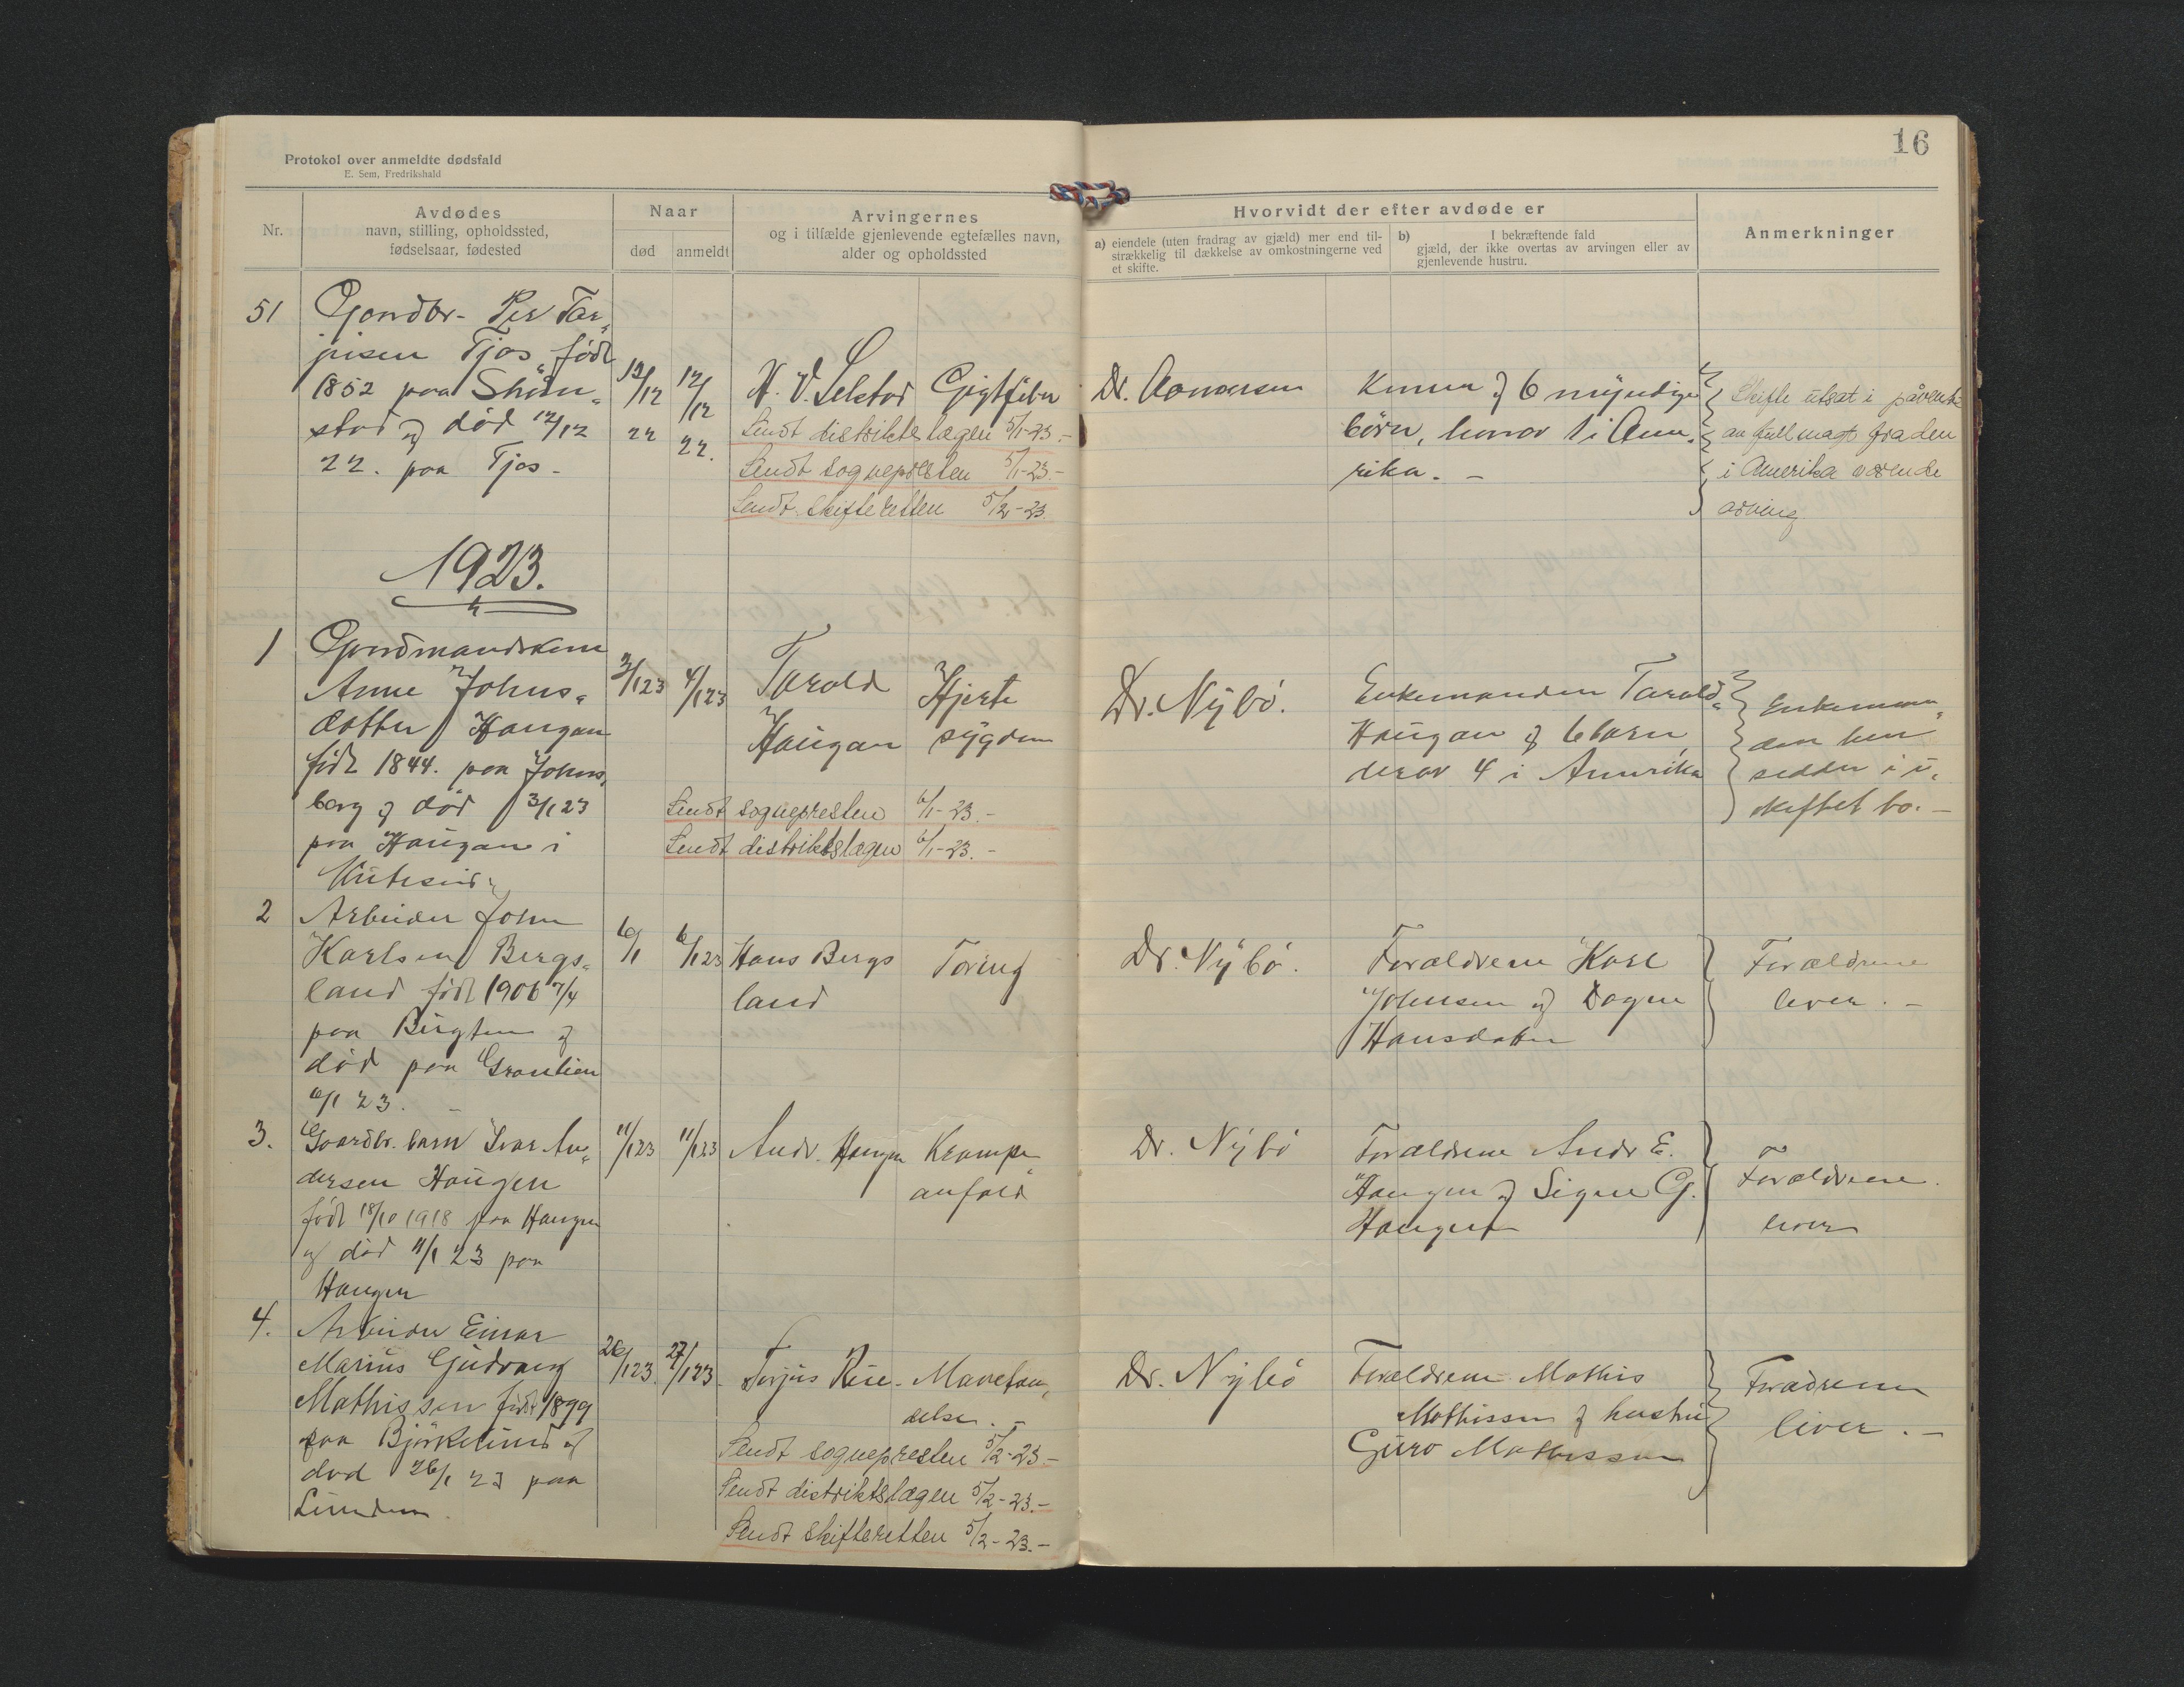 16
Protokol over anmeldte dødsfald
E. Sem, Fredrikshald
Nr.
Avdødes
navn, stilling, opholdssted,
fødselsaar, fødested
Naar
død
anmeldt
Arvingernes
og i tilfælde gjenlevende egtefælles navn,
alder og opholdssted
Hvorvidt der efter avdøde er
a) eiendele (uten fradrag av gjæld) mer end til-
strækkelig til dækkelse av omkostningerne ved
et skifte.
b) I bekræftende fald
gjæld, der ikke overtas av arvingen eller av
gjenlevende hustru.
Anmerkninger
51
Per Tar„
jusen Tjos født
1852 paa
stad og død 12/12
22. paa Tjos-
12/12
22
12/12
22.
H. V. Selstad Gigtfeber
Sendt distriktslægen 5/1-23.-
Sendt sogneprესten 5/1-23.-
Sendt skifteretten 5/2-23.
Dr. Aamdersen
Konen og 6 myndige
börn, horav 1 i Ame„
rika. -
Skifte utsat i påvente
av fullmagt fra den
i Amerika værende
arving
1923.
1
Gaardmandskone
Anne Johns„
datter Haugan
födt 1844. paa Johns„
berg og död 3/1 23
paa Haugan i
3/1 23
4/1 23
Tarald Hjerte
Haugan sygdom
Sendt sognepresten 6/1-23.-
Sendt distriktslægen 6/1-23.-
Dr. Nybö.
Enkemanden Tarald„
Haugan og 6 barn
derav 4 i Amerika
Enkeman„
den hen
sedder i u„
skiftet bo. -
2
Arbeider John
Karlsen Bergs„
land född 1906 7/4
paa
död paa Granlien
6/1 23. -
6/1
6/1 23
Hans Bergs Tæring
land
Dr. Nybö.
Forældrene Karl
Johnsen og Dagne
Hansdatter
Forældrene
lever. -
3.
Gaardbr. barn Ivar An„
dersen Haugen
födt 18/10 1918 paa Haugen
og död 11/1 23 paa
Haugen
11/1 23
11/1 23
Andr. Haugen Krampe„
anfald
Dr. Nybö
Forældrene Andr E.
Haugen og Signe G.
Haugen
Forældrene.
lever
4.
Arbeider Einar
Marius Gudvang
Mathissen födt 1899
paa Björkelund og
död 26/1 23 paa
Lunden.
26/1 23.
27/1 23.
Torjus Rue - Mavebæn„
delse. -
Sendt sognepresten 5/2-23.-
Sendt distriktslægen 5/2-23.-
Sendt skifteretten 5/2-23.-
Dr. Nybö
Forældrene Mathis
Mathissen og hustru
Guro Mathissen
Foradrene
lever. -